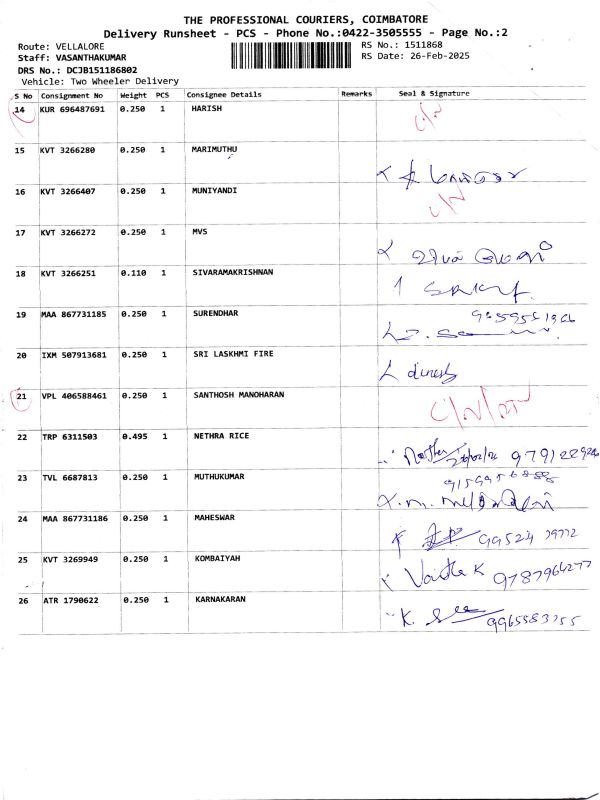 THE PROFESSIONAL COURIERS, COIMBATORE
Delivery Runsheet - PCS - Phone No.:0422-3505555 - Page No.:2
Route: VELLALORE
RS No.: 1511868
Staff: VASANTHAKUMAR
RS Date: 26-Feb-2025
DRS No.: DCJB151186802
Vehicle: Two Wheeler Delivery
S No Consignment No Weight PCS Consignee Details Remarks Seal & Signature
14 KUR 696487691 0.250 1 HARISH
15 KVT 3266280 0.250 1 MARIMUTHU
16 KVT 3266407 0.250 1 MUNIYANDI
17 KVT 3266272 0.250 1 MVS
18 KVT 3266251 0.110 1 SIVARAMAKRISHNAN
19 MAA 867731185 0.250 1 SURENDHAR
20 IXM 507913681 0.250 1 SRI LASKHMI FIRE
dinesh
21 VPL 406588461 0.250 1 SANTHOSH MANOHARAN
22 TRP 6311503 0.495 1 NETHRA RICE
23 TVL 6687813 0.250 1 MUTHUKUMAR
24 MAA 867731186 0.250 1 MAHESWAR
25 KVT 3269949 0.250 1 KOMBAIYAH
26 ATR 1790622 0.250 1 KARNAKARAN
K.